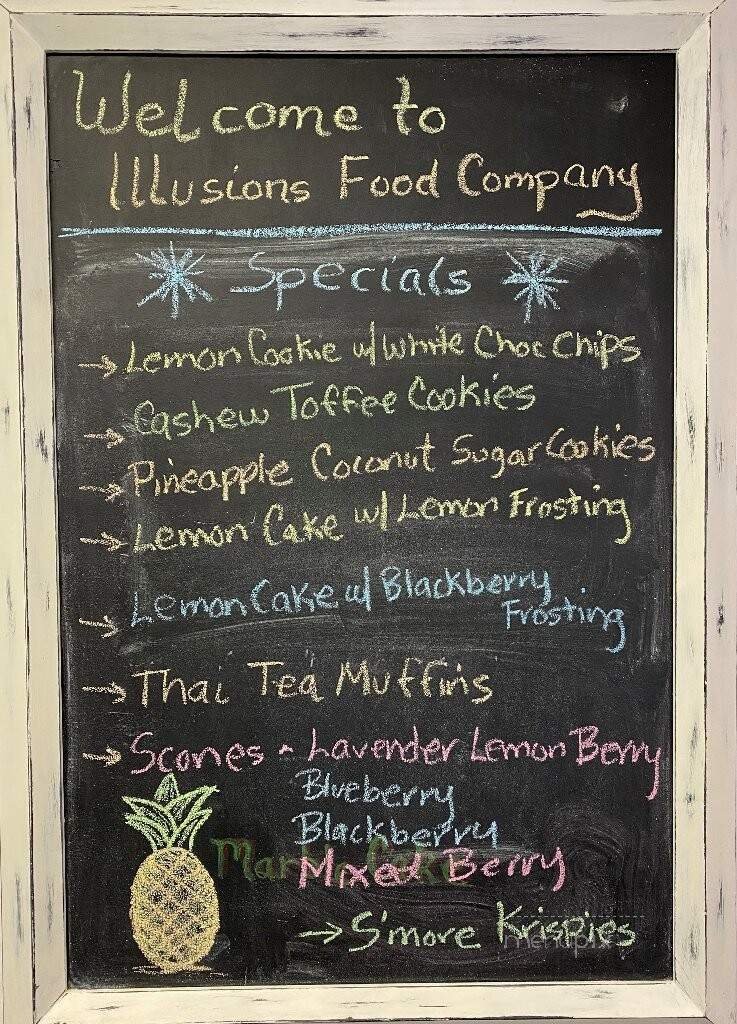 Welcome to
Illusions Food Company
Specials
→ Lemon Cookie w/ White Choc Chips
→ Cashew Toffee Cookies
→ Pineapple Coconut Sugar Cookies
→ Lemon Cake w/ Lemon Frosting
→ Lemon Cake w/ Blackberry
Frosting
→ Thai Tea Muffins
→ Scones - Lavender Lemon Berry
Blueberry
Blackberry
Mixed Berry
→ S'more Krispies
menupix